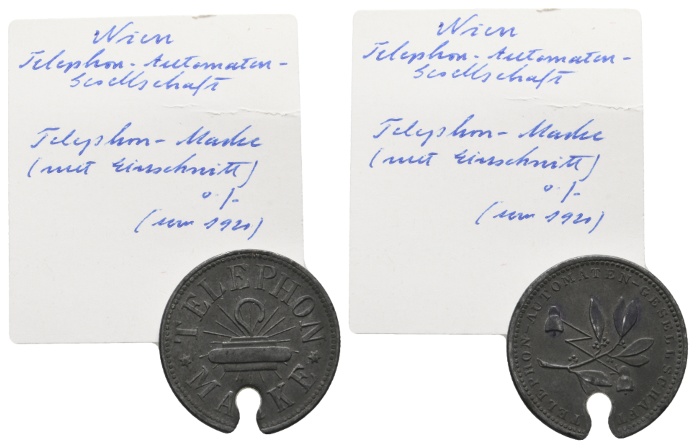 Wien
Telephon-Automaten-
Gesellschaft
Telephon-Marke
(mit Einschnitt)
o. J.
(um 1920)
TELEPHON
MARKE
Wien
Telephon-Automaten-
Gesellschaft
Telephon-Marke
(mit Einschnitt)
o. J.
(um 1920)
TELEPHON-AUTOMATEN-GESELLSCHAFT